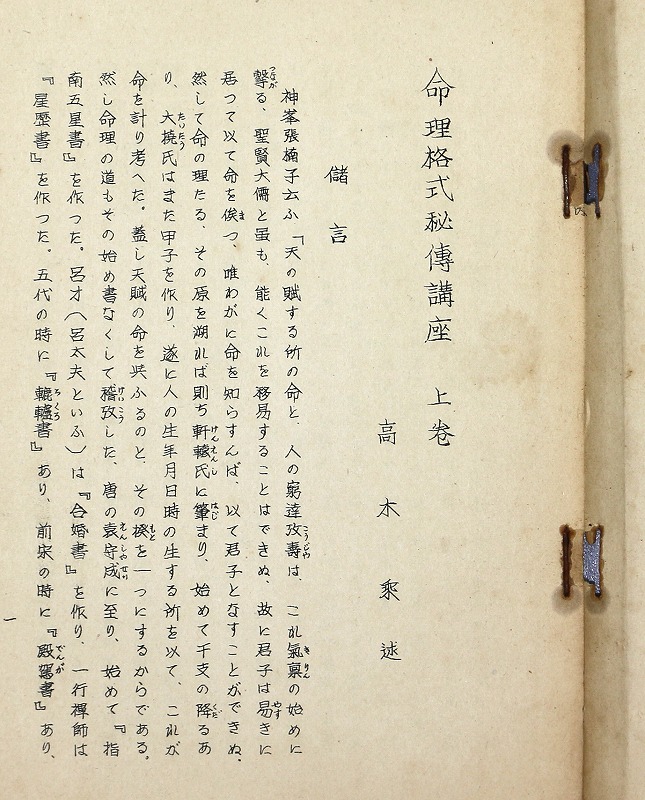 命理格式秘傳講座　上巻
高木乘述
儲言
神峯張楠子云ふ「天の賦する所の命と、人の窮達攷壽は、これ氣稟の始めに
繋る、聖賢大儒と虽も、能くこれを移易することはできぬ、故に君子は易きに
居つて以て命を俟つ、唯わがに命を知らずんば、以て君子となすことができぬ、
然して命の理たる、その原を溯れば則ち軒轅氏に肇まり、始めて干支の降るあ
り、大撓氏はまた甲子を作り、遂に人の生年月日時の生する所を以て、これが
命を計り考へた。蓋し天賦の命を異ふるのと、その揆を一つにするからである。
然し命理の道もその始め書なくして稽攷した、唐の袁守成に至り、始めて『指
南五星書』を作つた。呂才（呂太夫といふ）は『合婚書』を作り、一行禅師は
『星歴書』を作つた。五代の時に『轆轤書』あり、前宋の時に『殿駕書』あり、
一